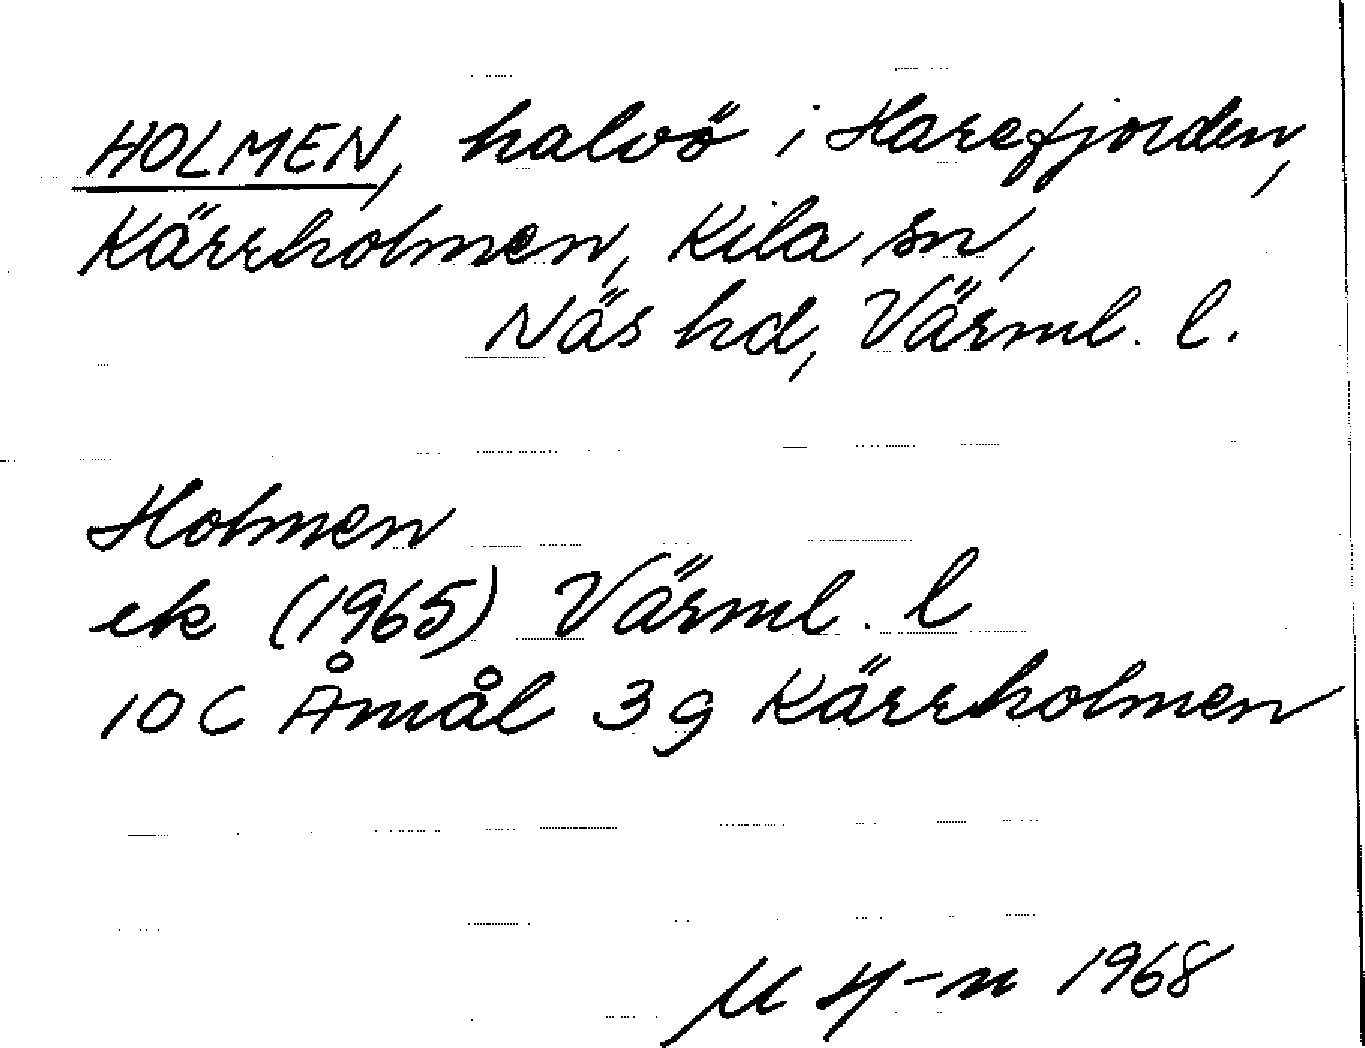 HOLMEN, halvö i Harefjorden,
Kärrholmen, Kila sn,
Näs hd, Värml. l.
Holmen
ek (1965) Värml. l
10 C Åmål 3 g Kärrholmen
M H-n 1968